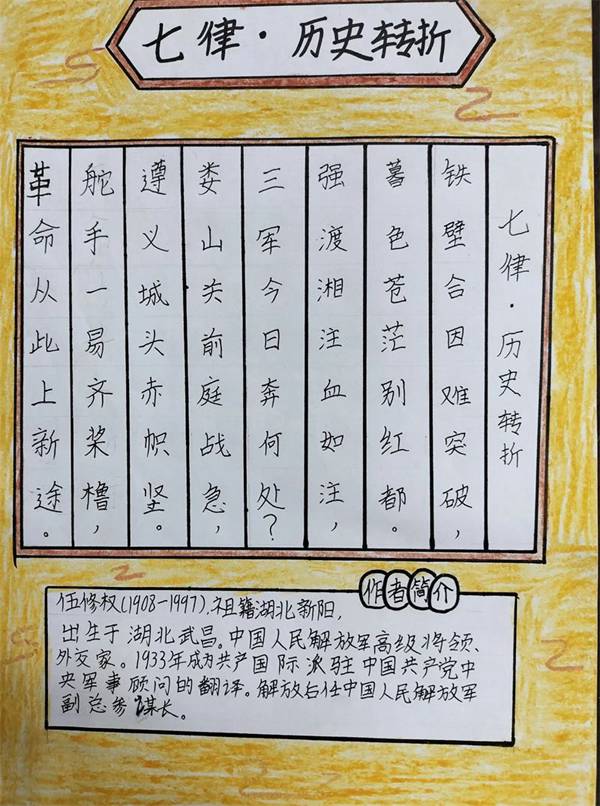 七律·历史转折
七律·历史转折
铁壁合因难突破，
暮色苍茫别红都。
强渡湘注血如注，
三军今日奔何处？
娄山关前庭战急，
遵义城头赤帜坚。
舵手一易齐桨橹，
革命从此上新途。
作者简介
伍修权(1908-1997)，祖籍湖北新阳，
出生于湖北武昌。中国人民解放军高级将领、
外交家。1933年成为共产国际派驻中国共产党中
央军事顾问的翻译。解放后任中国人民解放军
副总参谋长。